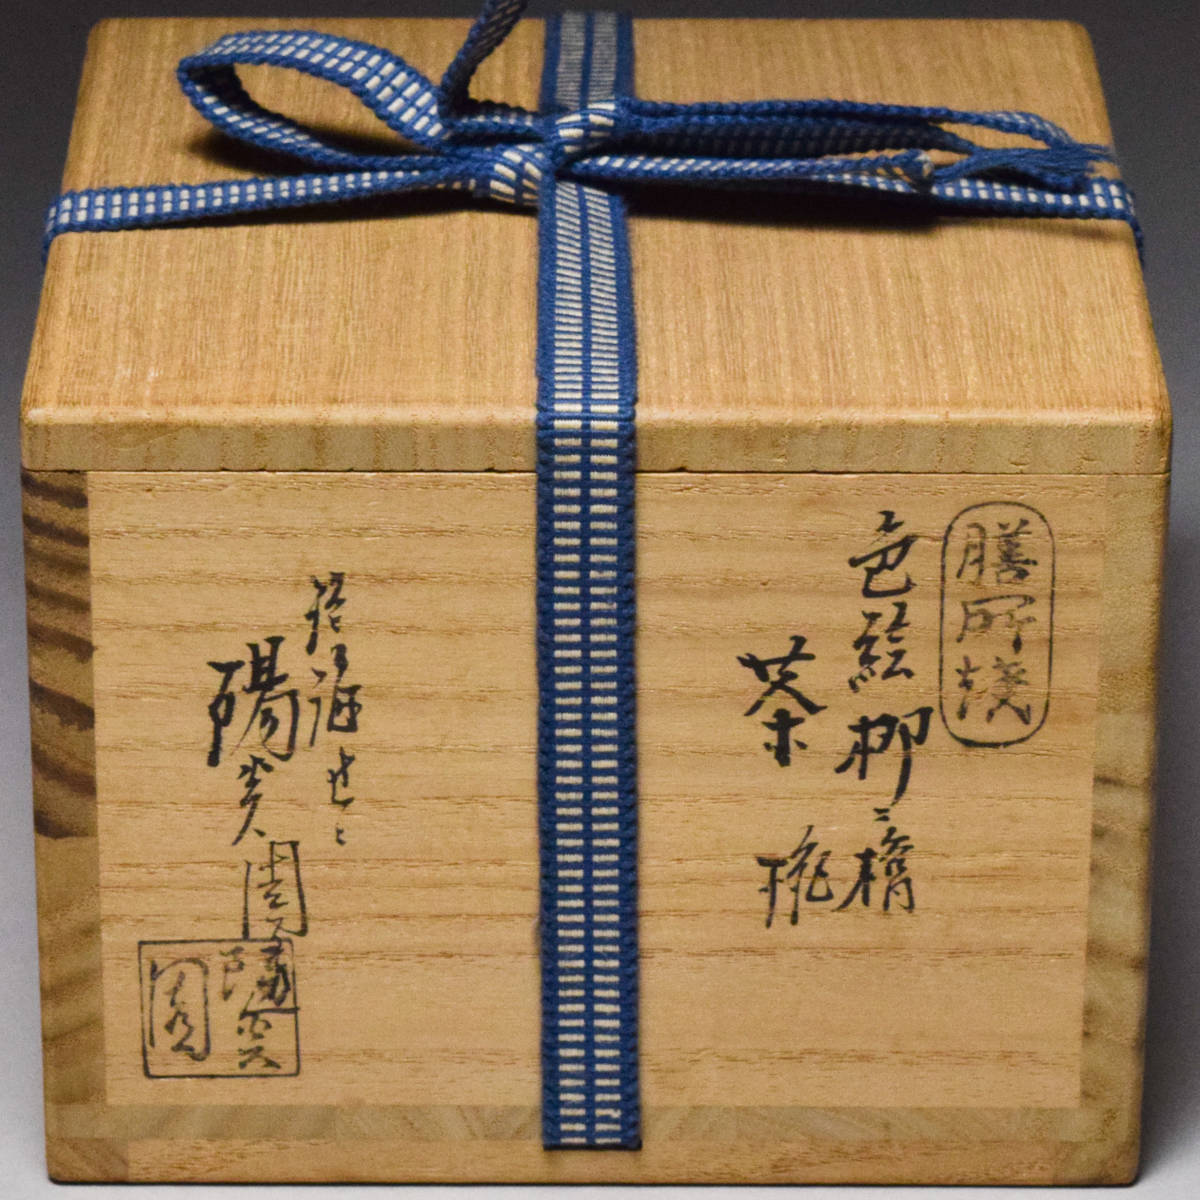 膳所焼
色絵柳ニ橋
茶碗
陽炎園
陽炎園